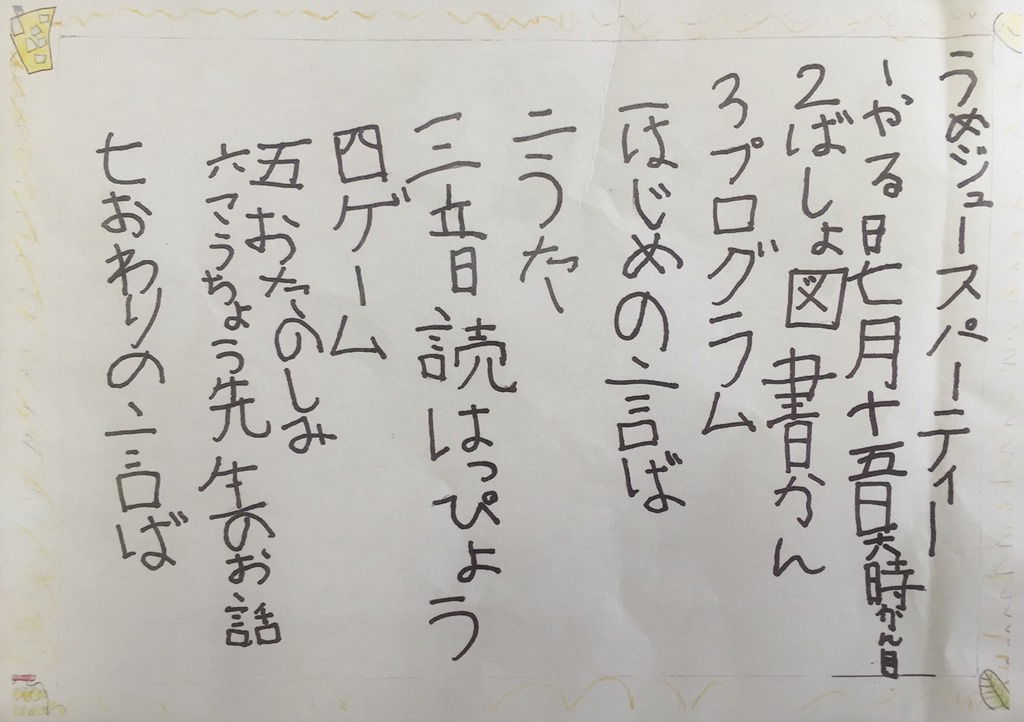 うめジュースパーティー
1やる日七月十五日六時かん目
2ばしょ図書かん
3プログラム
一はじめの言ば
二うた
三音読はっぴょう
四ゲーム
五おたのしみ
六こうちょう先生のお話
七おわりの言ば